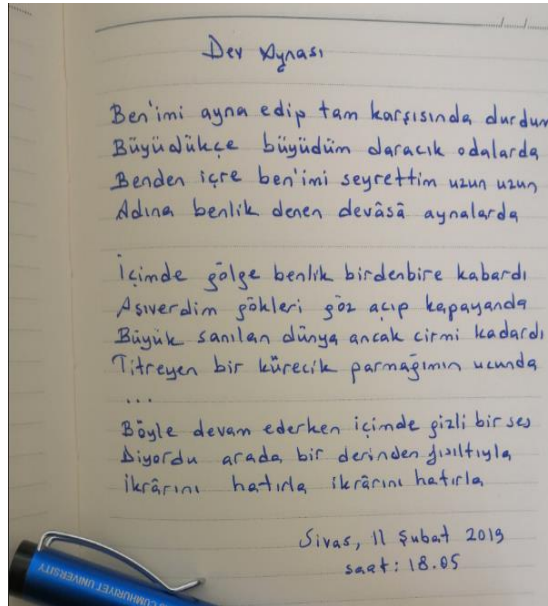 Dev Aynası
Ben'imi ayna edip tam karşısında durdum
Büyüdükçe büyüdüm daracık odalarda
Benden içre ben'imi seyrettim uzun uzun
Adına benlik denen devâsâ aynalarda
İçimde gölge benlik birdenbire kabardı
Aşıverdim gökleri göz açıp kapayanda
Büyük sanılan dünya ancak cirmi kadardı
Titreyen bir kürecik parmağımın ucunda
...
Böyle devam ederken içimde gizli bir ses
Diyordu arada bir derinden fısıltıyla
İkrârını hatırla ikrârını hatırla
Sivas, 11 Şubat 2019
saat: 18.05
CUMHURIYET UNIVERSITY